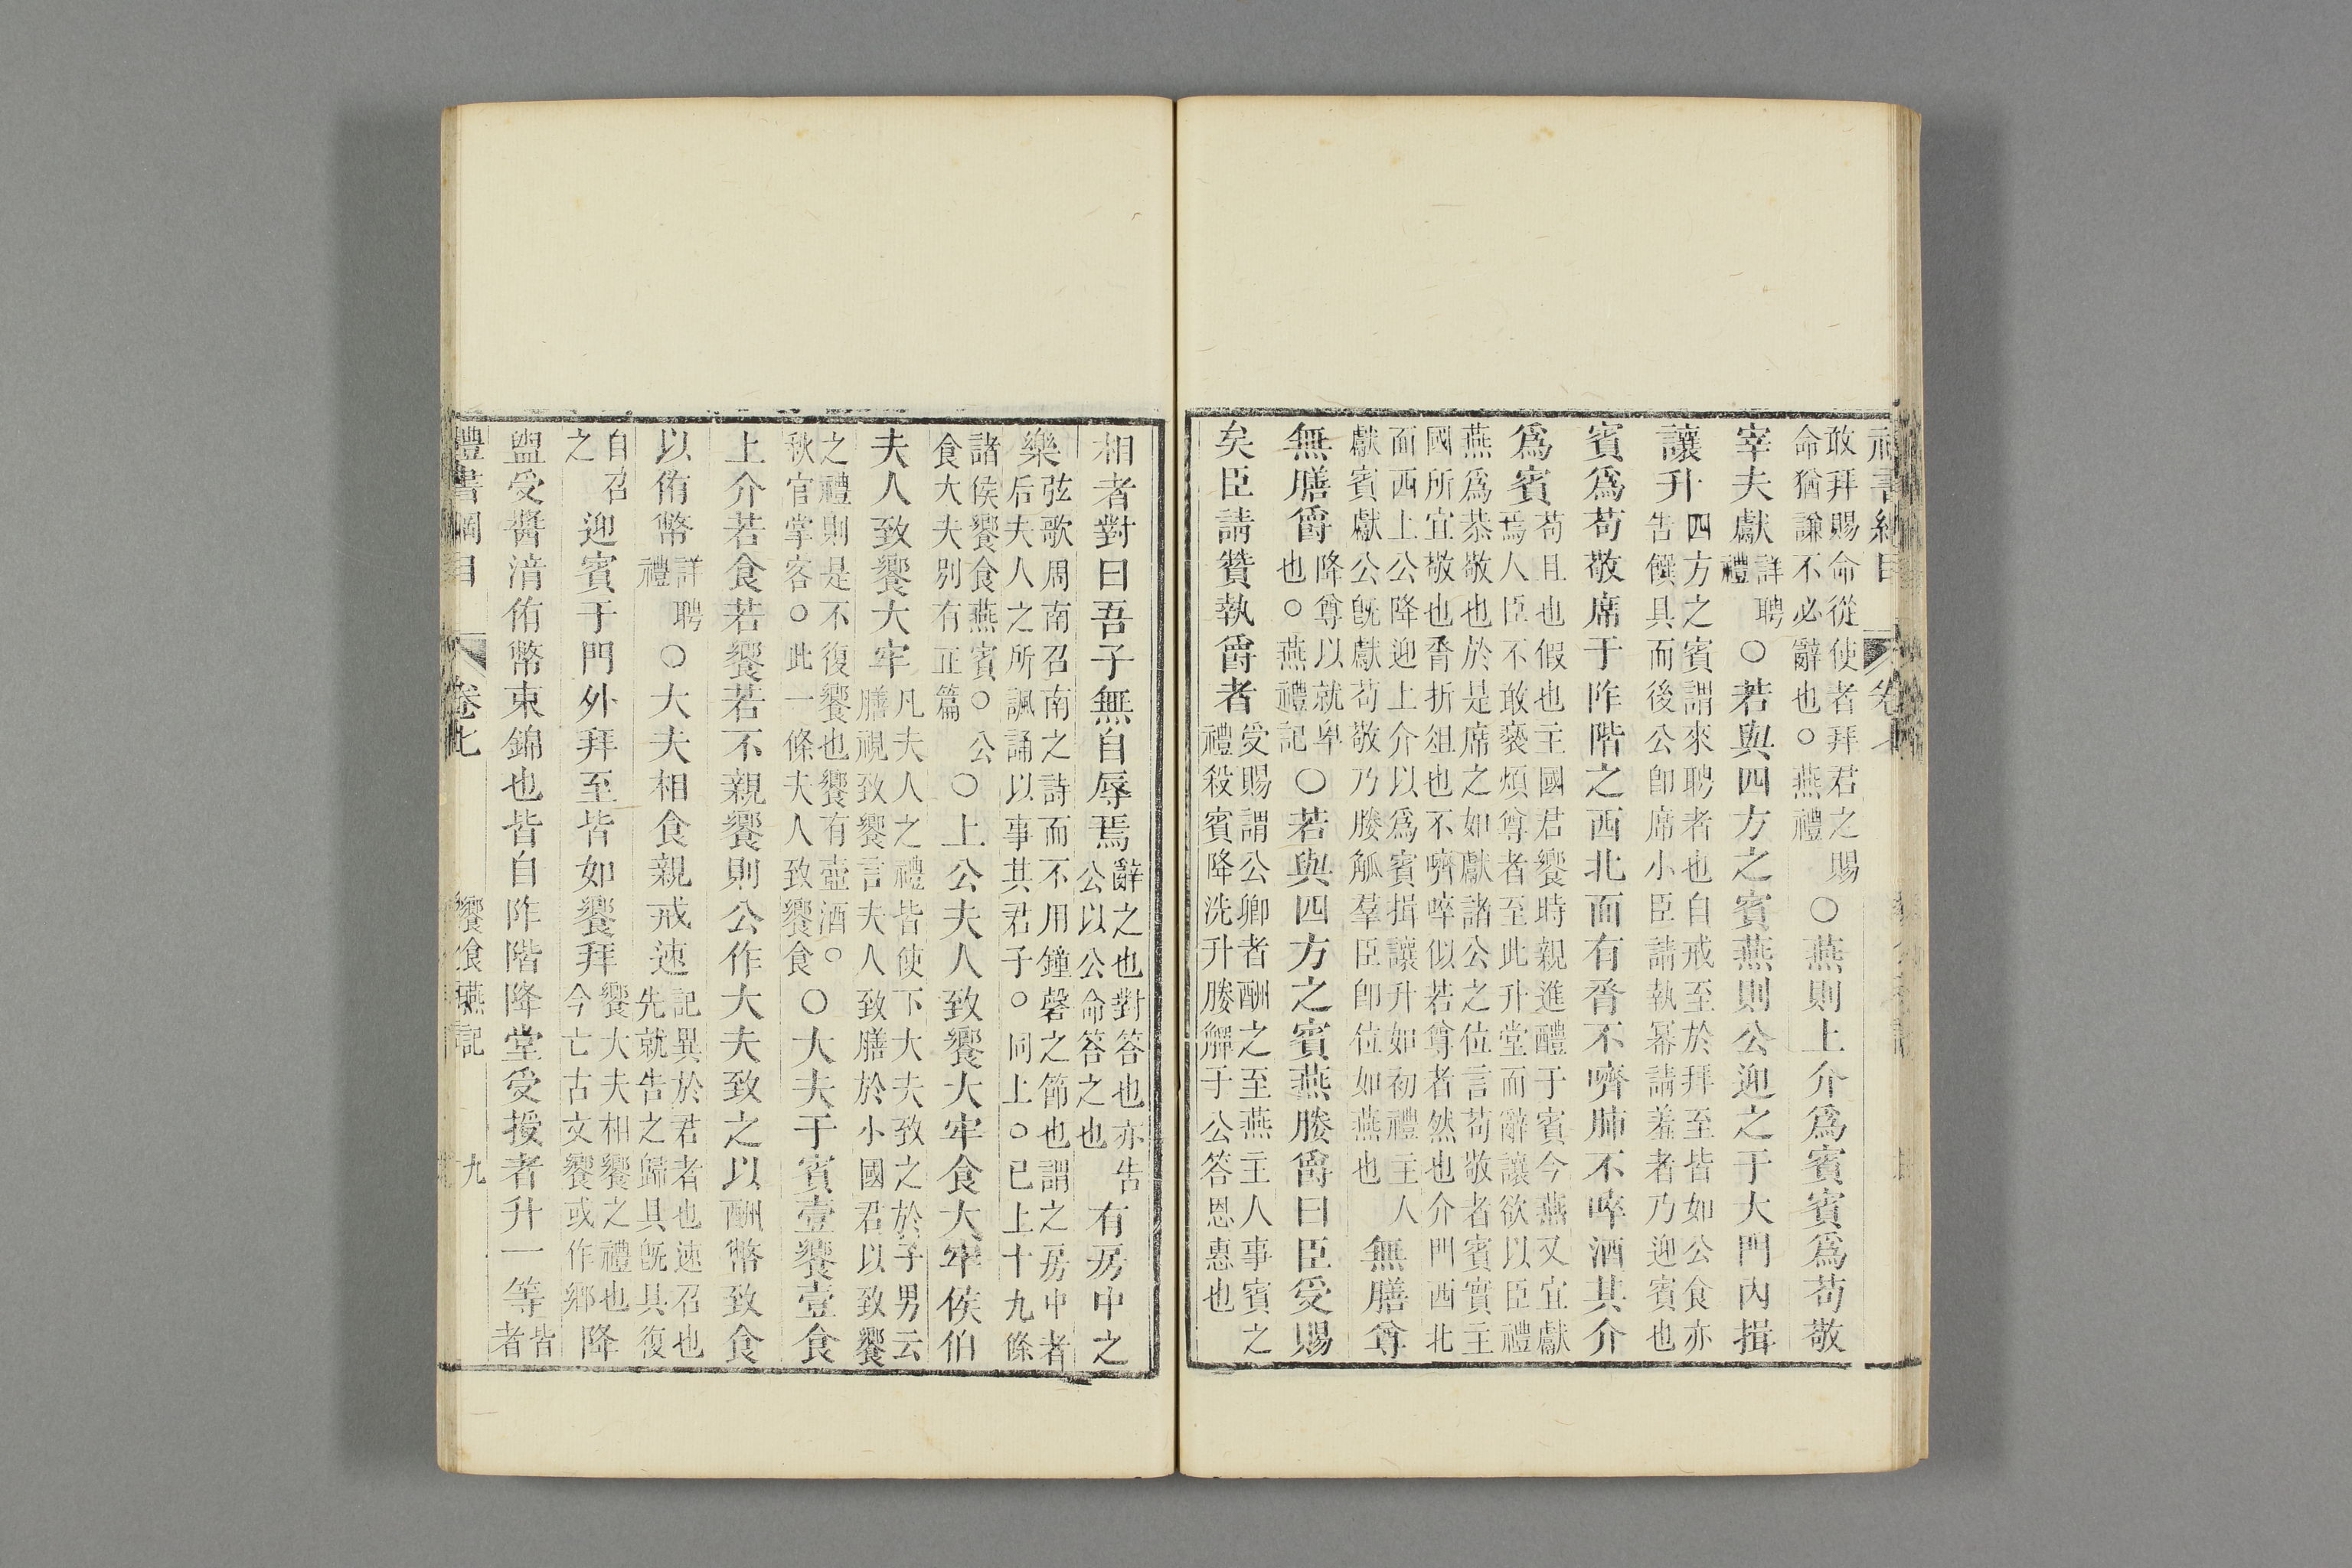 敢拜賜命從使者拜君之賜
命猶謙不必辭也。燕禮
○燕則上介爲賓賓爲苟敬
宰夫獻
詳聘
禮
○若與四方之賓燕則公迎之于大門內揖
讓升
四方之賓謂來聘者也自戒至於拜至皆如公食亦
告饌具而後公卽席小臣請執冪請羞者乃迎賓也
賓爲苟敬席于阼階之西北面有脀不嚌肺不啐酒其介
爲賓
苟且也假也主國君饗時親進醴于賓今燕又宜獻
焉人臣不敢褻煩尊者至此升堂而辭讓欲以臣禮
燕爲恭敬也於是席之如獻諸公之位言苟敬者賓實主
國所宜敬也脀折俎也不嚌啐似若尊者然也介門西北
面西上公降迎上介以爲賓揖讓升如初禮主人
獻賓獻公旣獻苟敬乃媵觚羣臣卽位如燕也
無膳尊
無膳爵
降尊以就卑
也。燕禮記
○若與四方之賓燕媵爵曰臣受賜
矣臣請贊執爵者
受賜謂公卿者酬之至燕主人事賓之
禮殺賓降洗升媵觶于公答恩惠也
相者對曰吾子無自辱焉
辭之也對答也亦告
公以公命答之也
有房中之
樂
弦歌周南召南之詩而不用鐘磬之節也謂之房中者
后夫人之所諷誦以事其君子。同上○已上十九條
諸侯饗食燕賓。公
食大夫別有正篇
○上公夫人致饗大牢食大牢侯伯
夫人致饗大牢
凡夫人之禮皆使下大夫致之於子男云
膳視致饗言夫人致膳於小國君以致饗
之禮則是不復饗也饗有壺酒。
秋官掌客。此一條夫人致饗食
○大夫于賓壹饗壹食
上介若食若饗若不親饗則公作大夫致之以酬幣致食
以侑幣
詳聘
禮
○大夫相食親戒速
記異於君者也速召也
先就告之歸具旣具復
自召
之
迎賓于門外拜至皆如饗拜
饗大夫相饗之禮也
今亡古文饗或作鄉
降
盥受醬湆侑幣束錦也皆自阼階降堂受授者升一等
皆
者
禮書綱目
卷七
饗食燕記
九